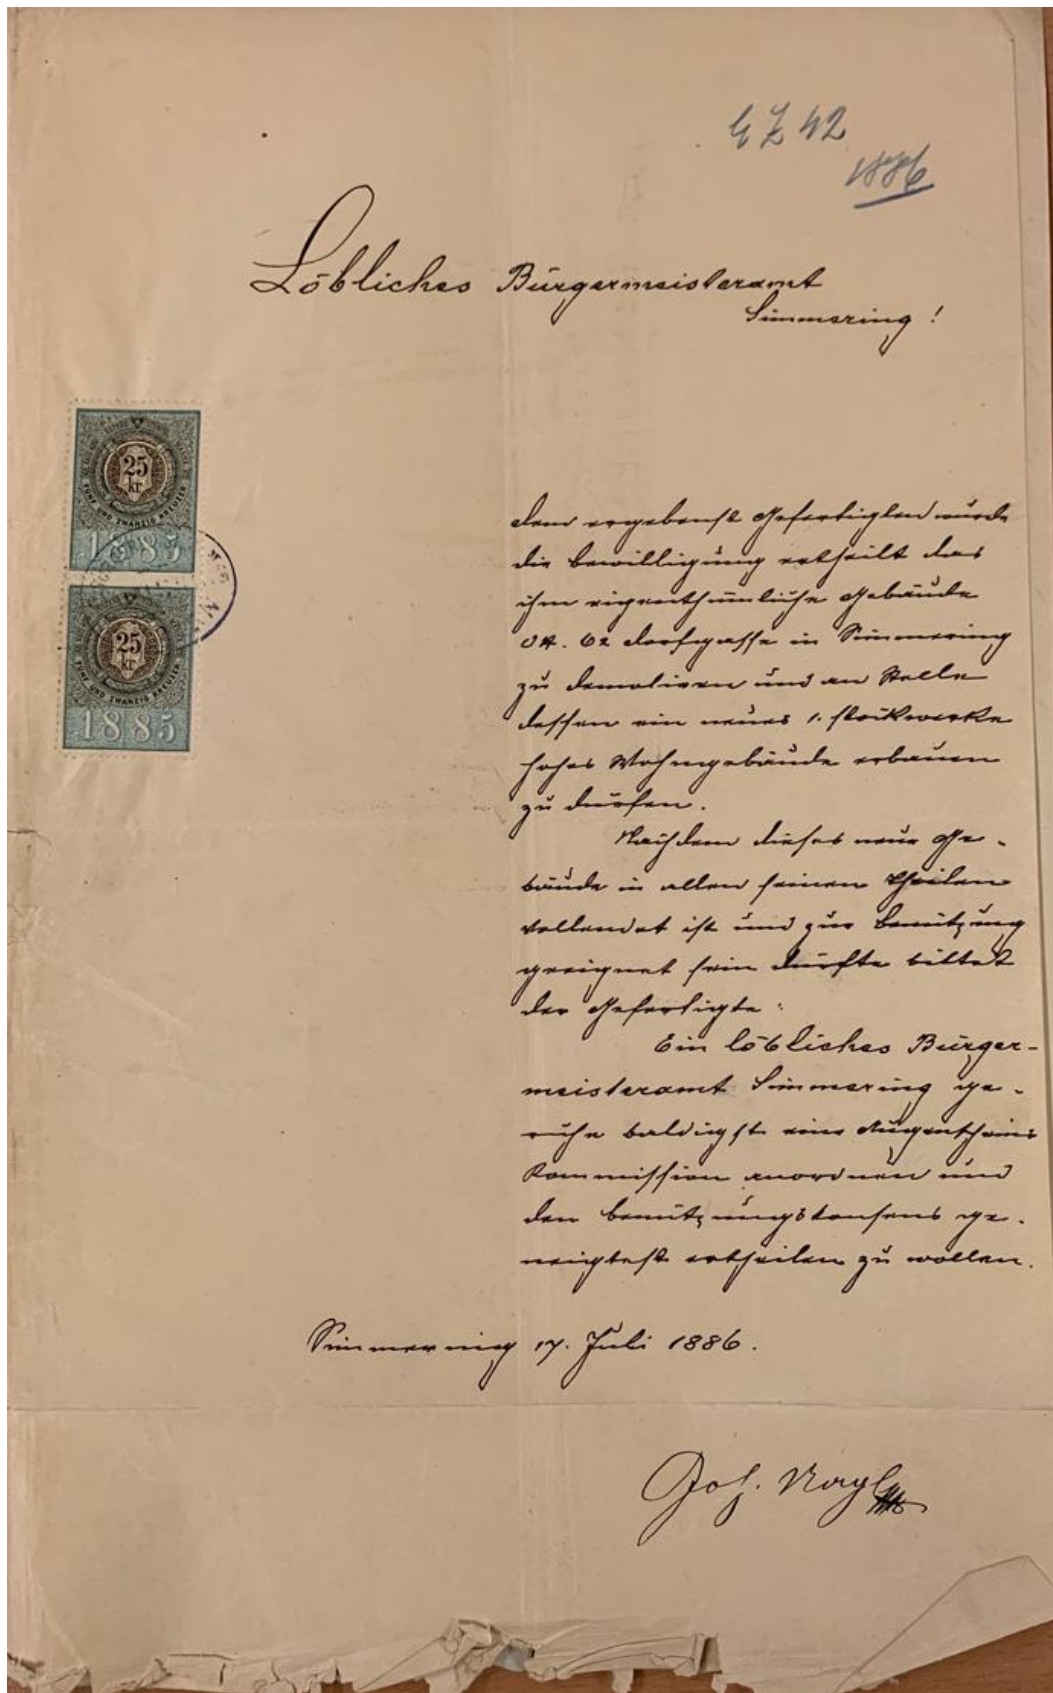 EZ 42
1886
Löbliches Bürgermeisteramt
Simmering!
25
kr
FÜNF UND ZWANZIG KREUZER
1885
25
kr
FÜNF UND ZWANZIG KREUZER
1885
dem ergebenst Gefertigten wurde
die bewilligung ertheilt das
ihm eigenthümliche Gebäude
62 dorfgasse in Simmering
zu demoliren und an Stelle
dessen ein neues 1. stockwerke
hohes Wohngebäude erbauen
zu dürfen.
Nachdem dieses neue Ge-
bäude in allen seinen theilen
vollendet ist und zur benützung
geeignet sein dürfte bittet
der Gefertigte:
Ein löbliches Bürger-
meisteramt Simmering ge-
ruhe baldigst eine Augenscheins
Kommission anordnen und
den benützungskonsens ge-
neigtest ertheilen zu wollen.
Simmering 17. Juli 1886.
Joh. Nagl